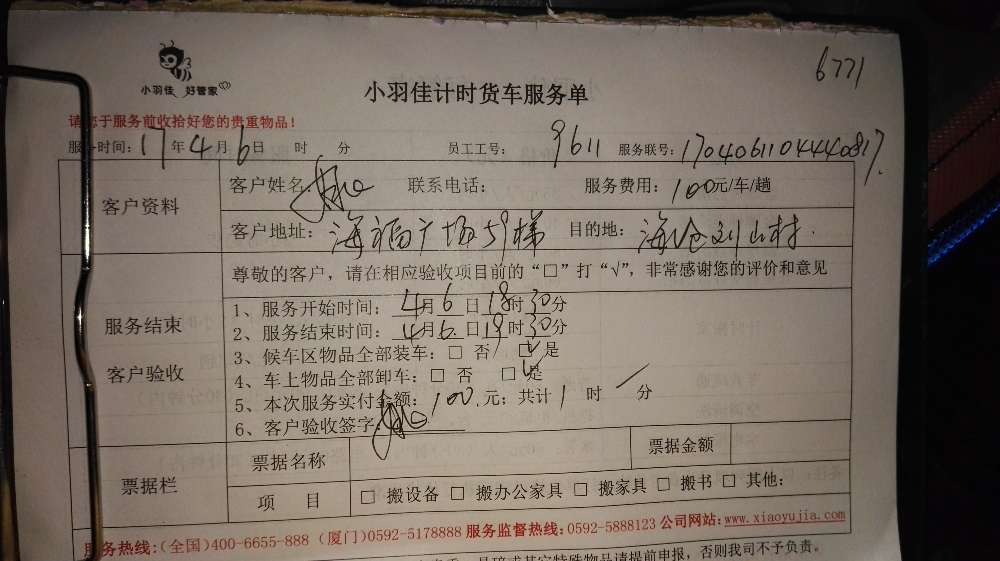 6771
小羽佳 好管家
小羽佳计时货车服务单
请您于服务前收拾好您的贵重物品！
服务时间：17年4月6日 时 分 员工工号：9611 服务联号：1704061104440817
客户资料
客户姓名 联系电话： 服务费用：100元/车/趟
客户地址：海福广场 梯 目的地：海沧刘山村.
服务结束
客户验收
尊敬的客户，请在相应验收项目前的“□”打“√”，非常感谢您的评价和意见
1、服务开始时间：4月6日18时30分
2、服务结束时间：4月6日19时30分
3、候车区物品全部装车：□ 否 □ 是
4、车上物品全部卸车：□ 否 □ 是
5、本次服务实付金额：100.元；共计1时 分
6、客户验收签字：
票据栏
票据名称 票据金额
项 目 □ 搬设备 □ 搬办公家具 □ 搬家具 □ 搬书 □ 其他：
服务热线：（全国）400-6655-888（厦门）0592-5178888 服务监督热线：0592-5888123 公司网站：www.xiaoyujia.com
其它特殊物品请提前申报，否则我司不予负责。